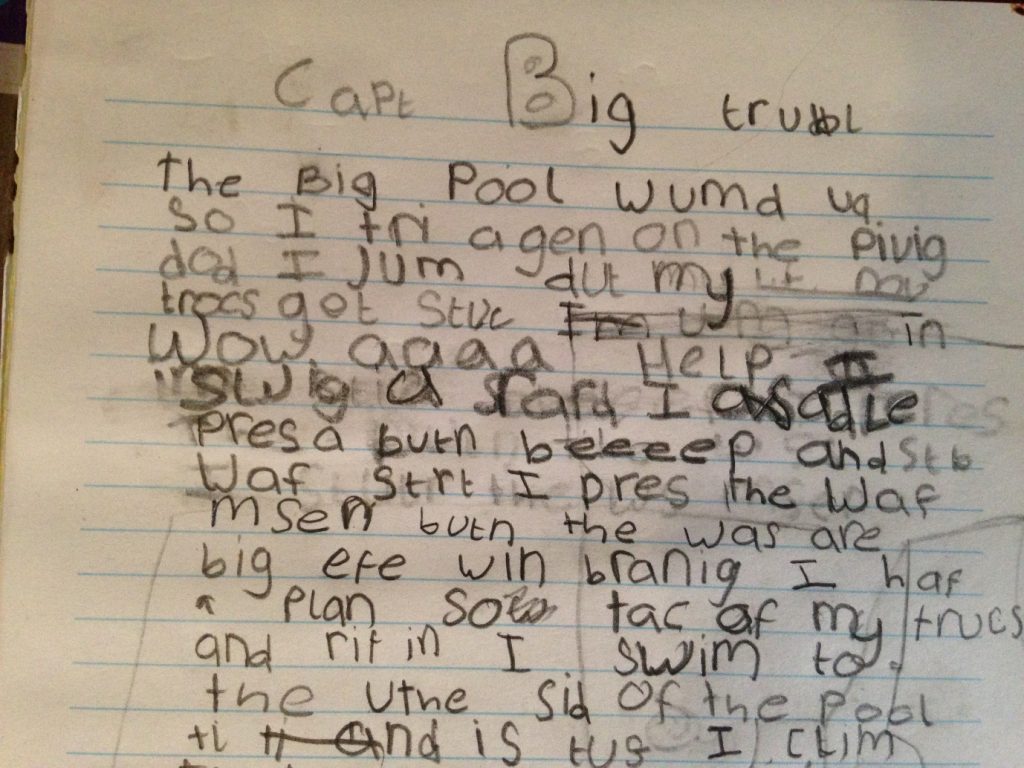 Capt Big trubl
The Big Pool wumd up.
So I tri agen on the Pivig
dod I Jum dut my
trocs got Stuc in
Wow agaaa Help
Swig a I
Pres a butn beeeeep and
Waf Strt I pres the Waf
msen butn the was are
big efe win branig I haf
a Plan So tac of my trucs
and rit in I swim to
the uthe Sid Of the Pool
ti and is tus I Clim